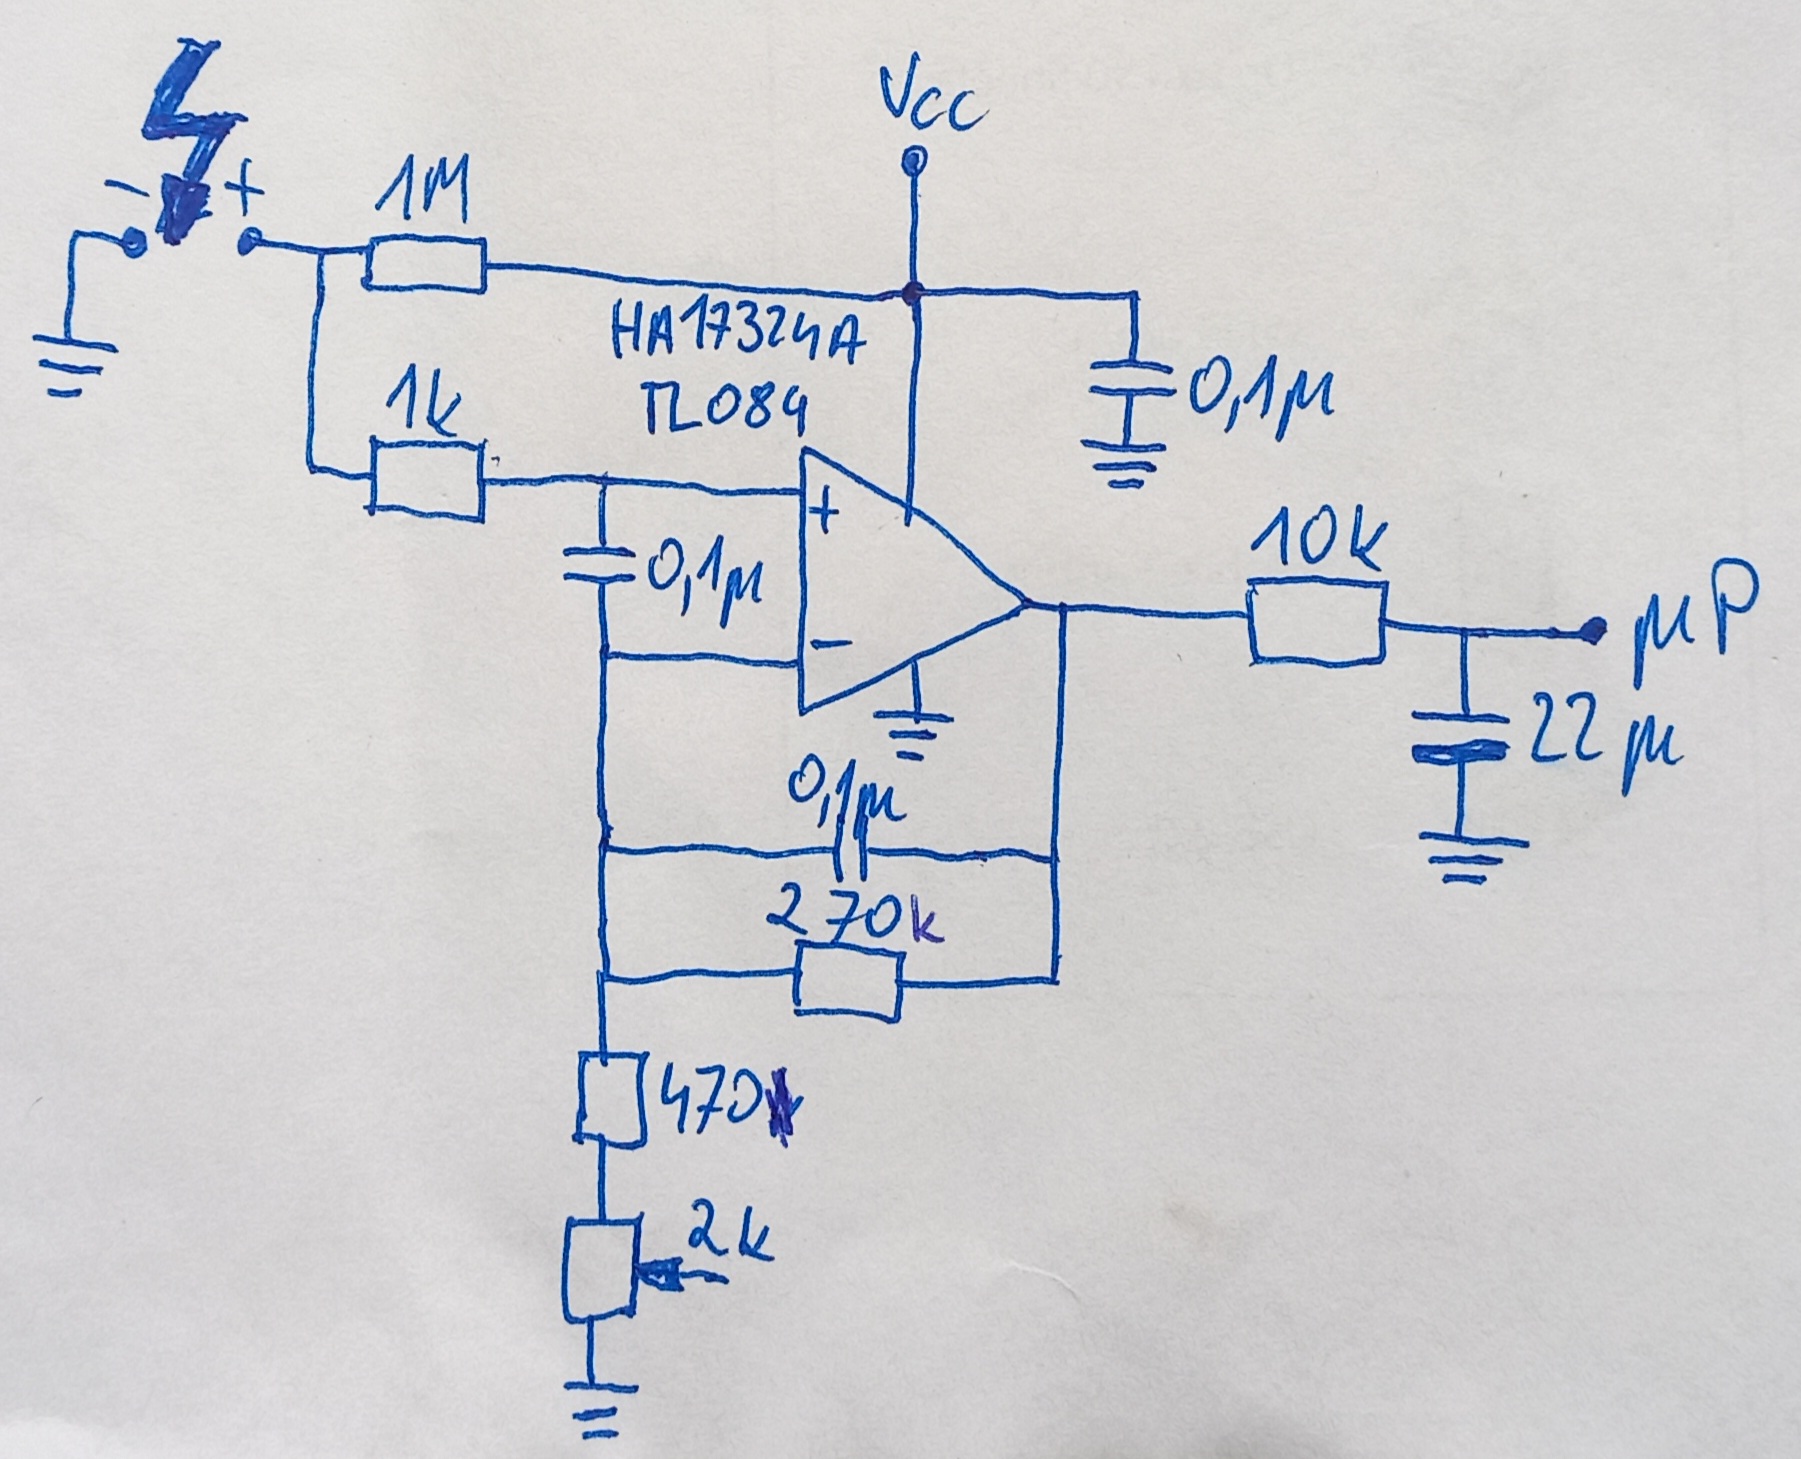 Vcc
- +
1M
HA17324A
TL084
1k
0,1µ
+
0,1µ
-
10k
µP
22µ
0,1µ
270k
470
2k